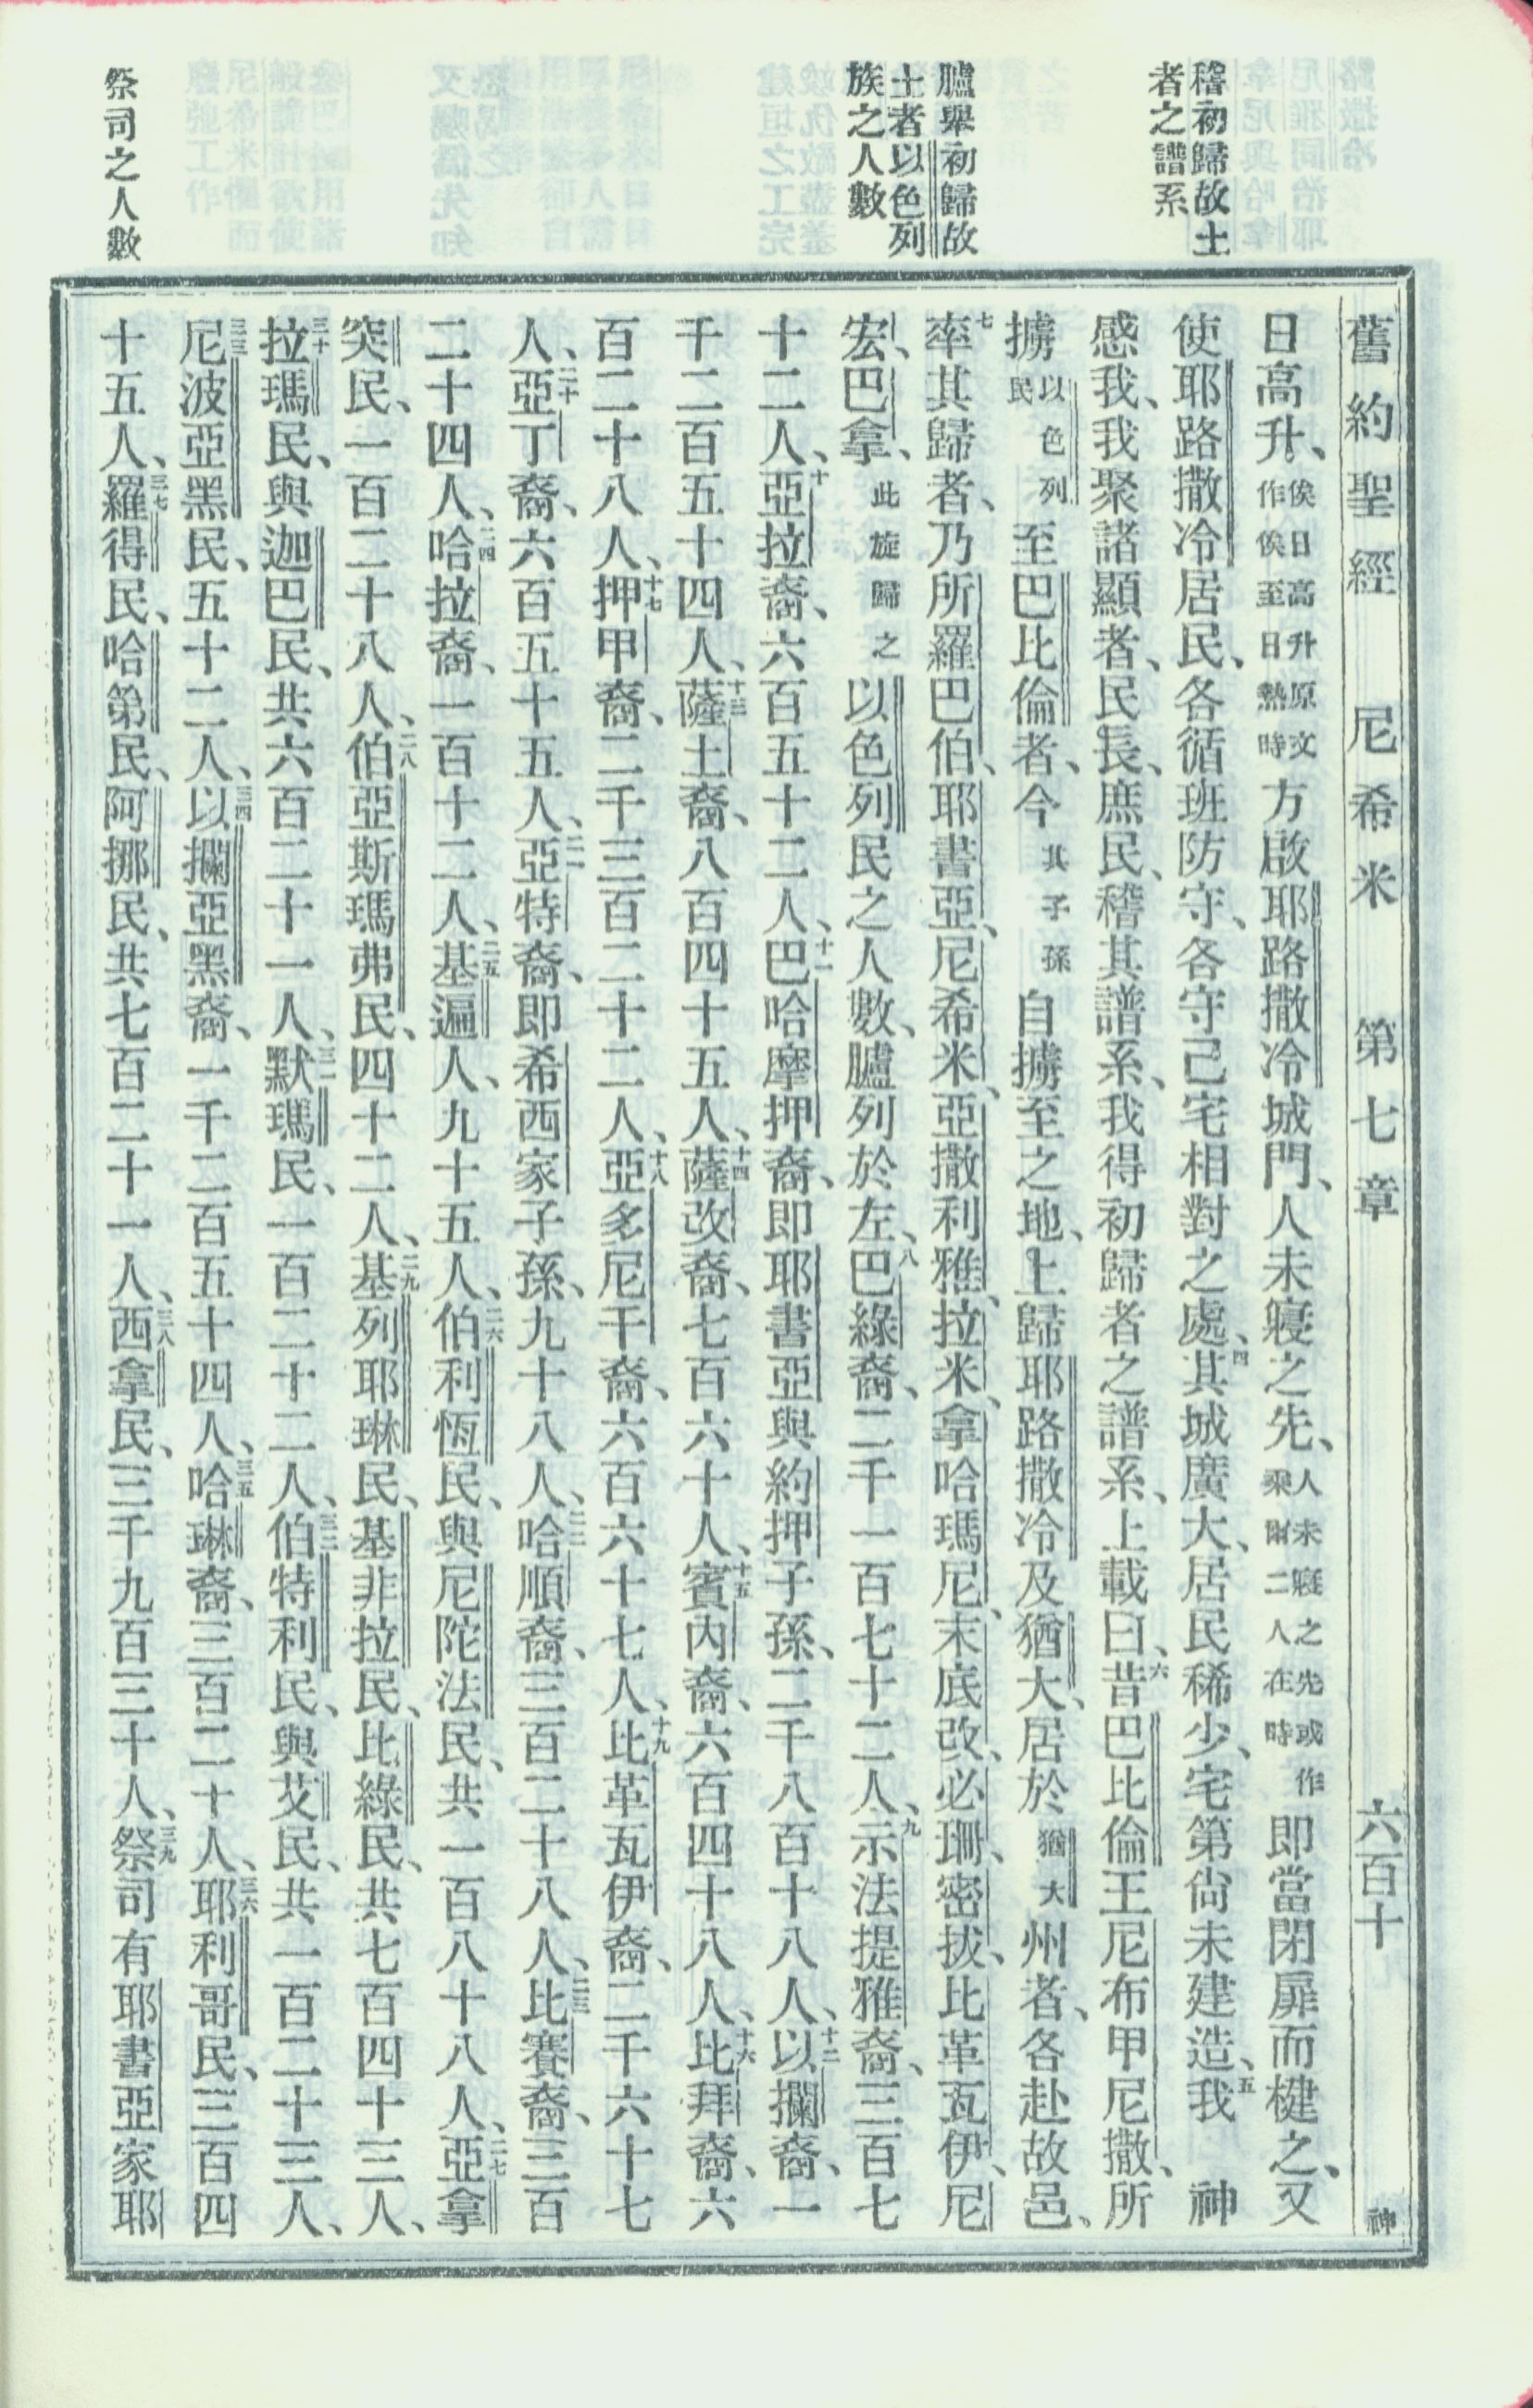 稽初歸故土
者之譜系
臚舉初歸故
土者以色列
族之人數
祭司之人數
舊約聖經　尼希米　第七章　六百十　神
日高升、俟日高升原文作俟至日熱時方啟耶路撒冷城門、人未寢之先、人未寢之先或作乘爾二人在時即當閉扉而楗之、又
使耶路撒冷居民、各循班防守、各守己宅相對之處、四其城廣大、居民稀少、宅第尙未建造、五我　神
感我、我聚諸顯者、民長、庶民、稽其譜系、我得初歸者之譜系、上載曰、六昔巴比倫王尼布甲尼撒、所
擄以色列民至巴比倫者、今其子孫自擄至之地、上歸耶路撒冷及猶大、居於猶大州者、各赴故邑、
七率其歸者、乃所羅巴伯、耶書亞、尼希米、亞撒利雅、拉米、拿哈瑪尼、末底改、必珊、密拔、比革瓦伊、尼
宏、巴拿、此旋歸之以色列民之人數、臚列於左、八巴綠裔、二千一百七十二人、九示法提雅裔、三百七
十二人、十亞拉裔、六百五十二人、十一巴哈摩押裔、即耶書亞與約押子孫、二千八百十八人、十二以攔裔、一
千二百五十四人、十三薩土裔、八百四十五人、十四薩改裔、七百六十人、十五賓內裔、六百四十八人、十六比拜裔、六
百二十八人、十七押甲裔、二千三百二十二人、十八亞多尼干裔、六百六十七人、十九比革瓦伊裔、二千六十七
人、二十亞丁裔、六百五十五人、二一亞特裔、即希西家子孫、九十八人、二二哈順裔、三百二十八人、二三比賽裔、三百
二十四人、二四哈拉裔、一百十二人、二五基遍人、九十五人、二六伯利恆民、與尼陀法民、共一百八十八人、二七亞拿
突民、一百二十八人、二八伯亞斯瑪弗民、四十二人、二九基列耶琳民、基非拉民、比綠民、共七百四十三人、
三十拉瑪民、與迦巴民、共六百二十一人、三一默瑪民、一百二十二人、三二伯特利民、與艾民、共一百二十三人、
三三尼波亞黑民、五十二人、三四以攔亞黑裔、一千二百五十四人、三五哈琳裔、三百二十人、三六耶利哥民、三百四
十五人、三七羅得民、哈第民、阿挪民、共七百二十一人、三八西拿民、三千九百三十人、三九祭司有耶書亞家耶